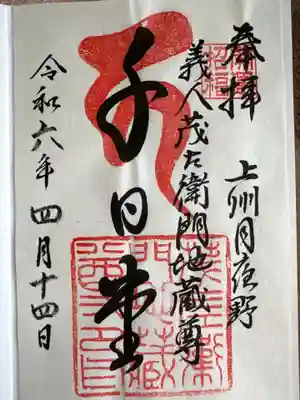 奉拝
上州月夜野
義人茂左衛門地蔵尊
千日堂
令和六年四月十四日
招福